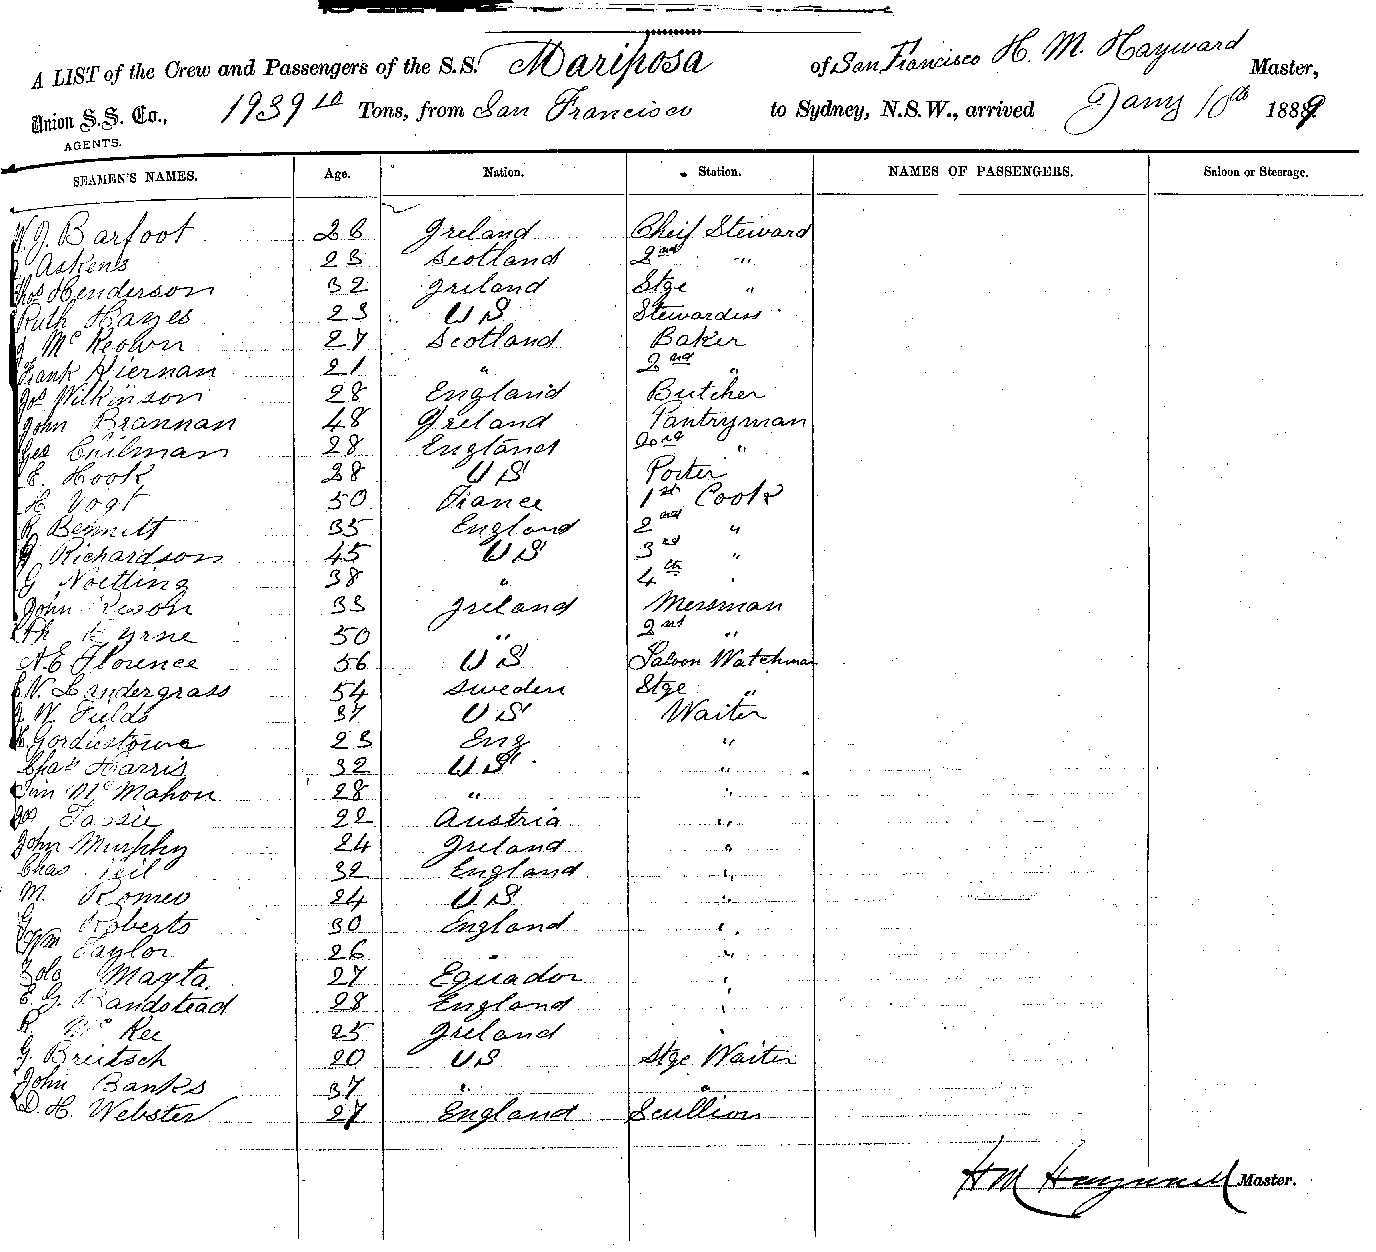 A LIST of the Crew and Passengers of the S.S. Mariposa of San Francisco H. M. Hayward Master,
Union S.S. Co., 1939 Tons, from San Francisco to Sydney, N.S.W., arrived Jany 10th 1889
AGENTS.
SEAMEN'S NAMES. Age. Nation. Station. NAMES OF PASSENGERS. Saloon or Steerage.
W. J. Barfoot 26 Ireland Cheif Steward
Askens 23 Scotland 2nd "
Thos Henderson 32 Ireland Stge "
Ruth Hayes 23 US Stewardess
J Mc Keown 27 Scotland Baker
Frank Hiernan 21 " 2nd "
Jos Wilkinson 28 England Butcher
John Brannan 48 Ireland Pantryman
Geo 28 England 2nd "
E. Hook 28 US Porter
H Vogt 50 France 1st Cook
R Bennett 35 England 2nd "
Richardson 45 US 3rd "
G Noetting 38 " 4th "
John 33 Ireland Messman
50 " 2nd "
A.E Florence 56 US Saloon Watchman
W. Landergrass 54 Sweden Stge "
J W. Fields 37 US Waiter
23 Eng "
Chas Harris 32 US "
Jim McMahon 28 " "
Jos Tassie 22 Austria "
John Murphy 24 Ireland "
Chas 32 England "
M. Romeo 24 US "
G Roberts 30 England "
Wm Taylor 26 " "
Mayta. 27 Equador "
E. G. Bandstead 28 England "
R. Mc Kee 25 Ireland
G. Breitsch 20 US Stge Waiter
John Banks 37 " "
D. H. Webster 27 England Scullion
H M Hayward Master.